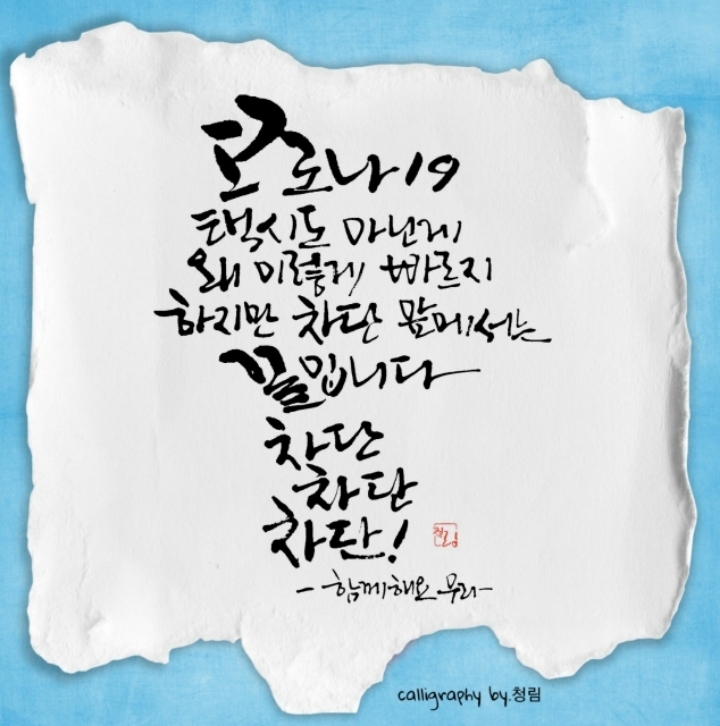 코로나19
택시도 아닌게
왜 이렇게 빠르지
하지만 차단 앞에서는
꼼입니다
차단
차단
차단!
청림
- 함께해요 우리 -
calligraphy by.청림